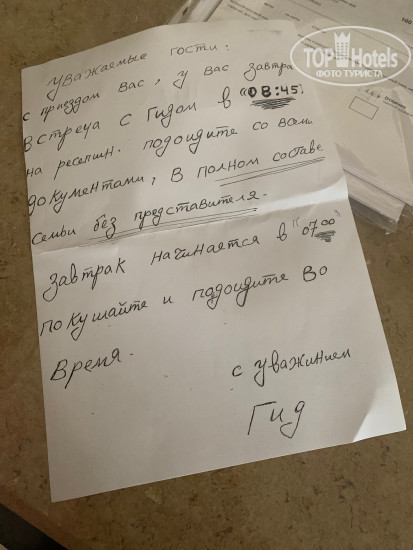 Уважаемые гости!
с приездом вас, у вас завтра
встреча с Гидом в "08:45"
на ресепшн. подоидите со всеми
документами, в полном составе
семьи без представителя.
завтрак начинается в "07⁰⁰"
покушайте и подоидите во
время.
с уважинием
Гид
TOP Hotels
ФОТО ТУРИСТА